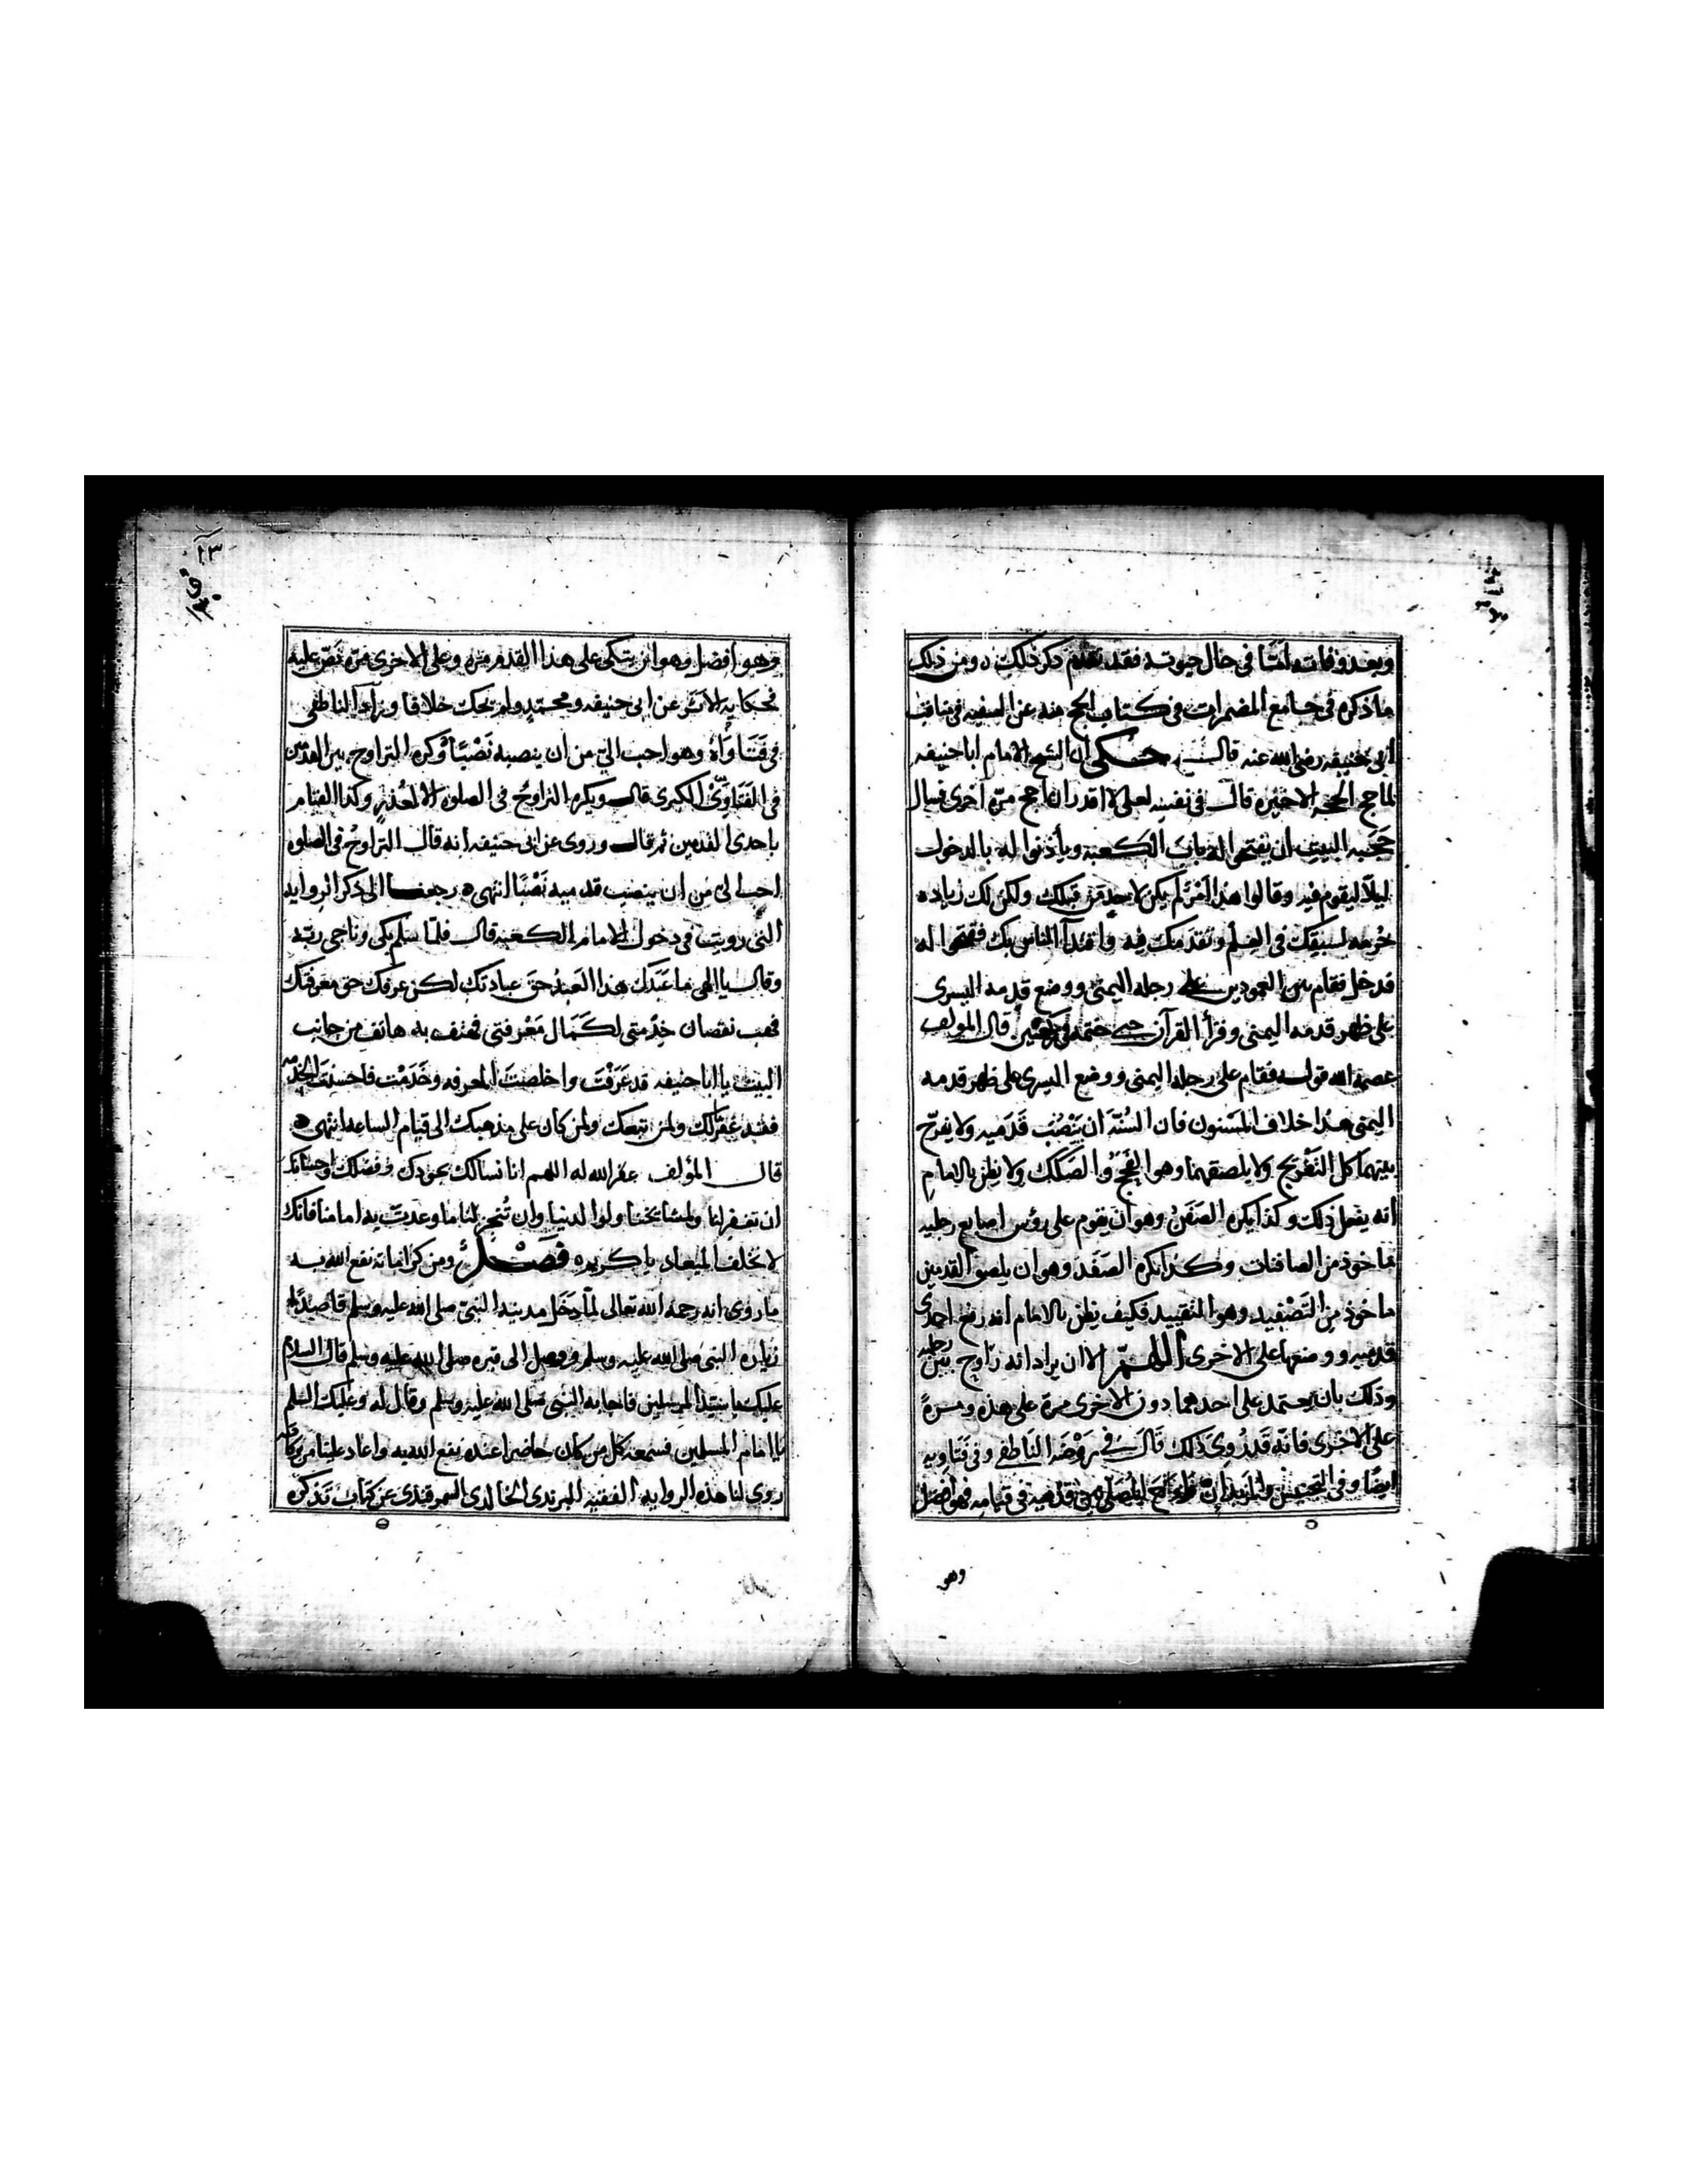 وبعد وفاته واما في حال حيوته فقد تقدم ذكر ذلك ومن ذلك
ما ذكره في جامع المضمرات في كتاب الحج منه عن السفيه في مناقب
ابي حنيفه رضي الله عنه قال حكى ان الشيخ الامام ابا حنيفه
لما حج الحجه الاخيره قال في نفسه لعلي لا اقدر ان احج مرة اخرى فسال
حجبه البيت ان يفتحوا له باب الكعبة ويأذنوا له بالدخول
ليلا ليقوم فيه وقالوا هذا امر لم يكن لاحد من قبلك ولكن لك زياده
حرمه لسبقك في العلم وتقدمك فيه واقتداء الناس بك ففتحوا له
فدخل فقام بين العمودين على رجله اليمنى ووضع قدمه اليسرى
على ظهر قدمه اليمنى وقرأ القرآن حتى ختمه في ركعتين قال المولف
عصمه الله قوله فقام على رجله اليمنى ووضع اليسرى على ظهر قدمه
اليمنى هذا خلاف المسنون فان السنة ان ينصب قدميه ولا يفرج
بينهما كل التفريج ولا يلصقهما وهو الفجج والصكك ولا يظن بالامام
انه يفعل ذلك وكذا يكره الصفن وهو ان يقوم على رؤس اصابع رجليه
ماخوذ من الصافنات وكذا يكره الصفد وهو ان يلصق القدمين
ماخوذ من التصفيد وهو التقييد فكيف يظن بالامام انه رفع احدى
قدميه ووضعها على الاخرى اللهم الا ان يراد انه راوح بين رجليه
وذلك بان يعتمد على احدهما دون الاخرى مرة على هذه ومرة
على الاخرى فانه قد روي ذلك قال في روضة الناطفي وفي فتاويه
ايضا وفي التجنيس والمزيد ان راوح المصلي بين قدميه في قيامه فهو افضل
وهو
١٣
وهو افضل وهو ان يتكى على هذا القدم مره وعلى الاخرى مرة نص عليه
في حكايه الاثر عن ابي حنيفه ومحمد ولم يحك خلافا وزاد الناطفي
في فتاواه وهو احب الي من ان ينصبه نصبا وكره التراوح بين القدمين
في الفتاوى الكبرى قال ويكره التراوح في الصلوه الا لعذر وكذا القيام
باحدى القدمين ثم قال وروى عن ابي حنيفه انه قال التراوح في الصلوه
احب الي من ان ينصب قدميه نصبا انتهى رجعنا الى ذكر الروايه
التي رويت في دخول الامام الكعبه قال فلما سلم بكى وناجى ربه
وقال يا الهي ما عبدك هذا العبد حق عبادتك لكن عرفك حق معرفتك
فهب نقصان خدمتي لكمال معرفتي فهتف به هاتف من جانب
البيت يا ابا حنيفه قد عرفت واخلصت المعرفه وخدمت فاحسنت الخدمه
فقد غفرنا لك ولمن تبعك ولمن كان على مذهبك الى قيام الساعه انتهى
قال المؤلف غفر الله له اللهم انا نسالك بجودك وفضلك واحسانك
ان تغفر لنا ولمشايخنا ولوالدينا وان تنجز لنا ما وعدت به امامنا فانك
لا تخلف الميعاد يا كريم فصل ومن كراماته نفع الله به
ما روى انه رحمه الله تعالى لما دخل مدينه النبي صلى الله عليه وسلم قاصدا
زياره النبي صلى الله عليه وسلم ووصل الى قبره صلى الله عليه وسلم قال السلام
عليك يا سيد المرسلين فاجابه النبي صلى الله عليه وسلم وقال له وعليك السلم
يا امام المسلمين فسمعه كل من كان حاضرا عنده نفع الله به واعاد علينا من بركاته
روى لنا هذه الروايه الفقيه البرندى الخالدى السمرقندى عن كتاب تذكره